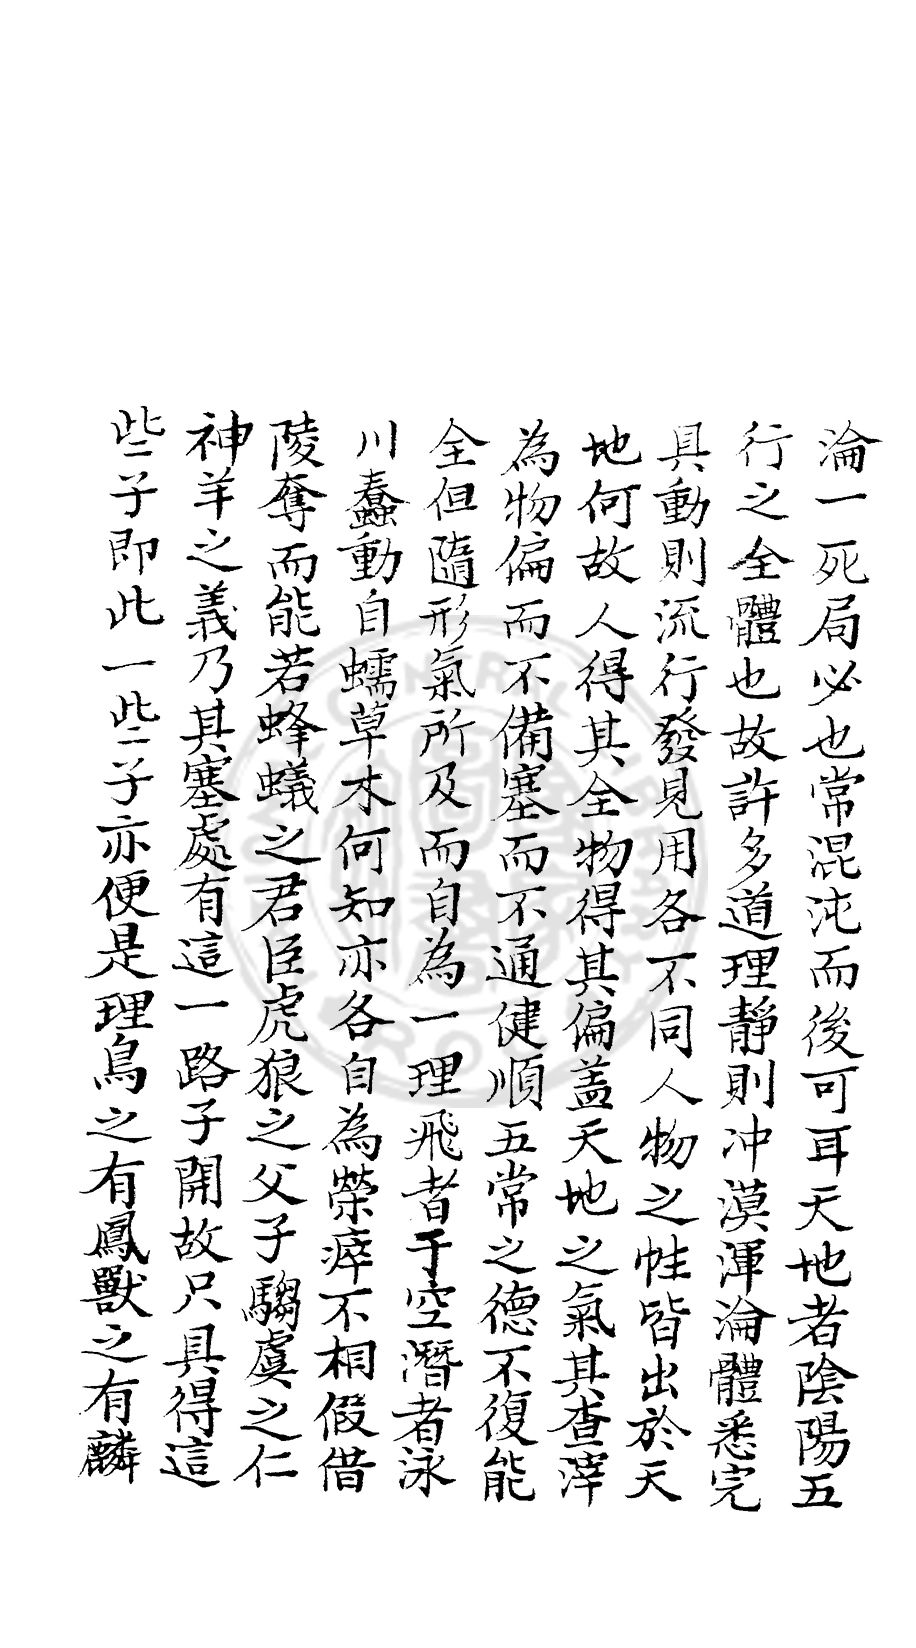 淪一死局必也常混沌而後可耳天地者陰陽五
行之全體也故許多道理靜則冲漠渾淪體悉完
具動則流行發見用各不同人物之性皆出於天
地何故人得其全物得其偏盖天地之氣其查滓
為物偏而不備塞而不通健順五常之德不復能
全但隨形氣所及而自為一理飛者于空潛者泳
川蠢動自蠕草木何知亦各自為榮瘁不相假借
陵奪而能若蜂蟻之君臣虎狼之父子騶虞之仁
神羊之義乃其塞處有這一路子開故只具得這
些子即此一些子亦便是理鳥之有鳳獸之有麟